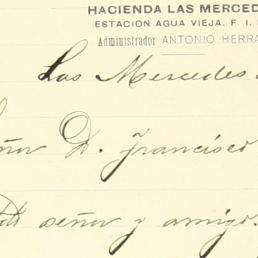 HACIENDA LAS MERCED
ESTACION AGUA VIEJA. F. I.
Administrador ANTONIO HERRA
Las Mercedes
ñor D. Francisco
señor y amigo.